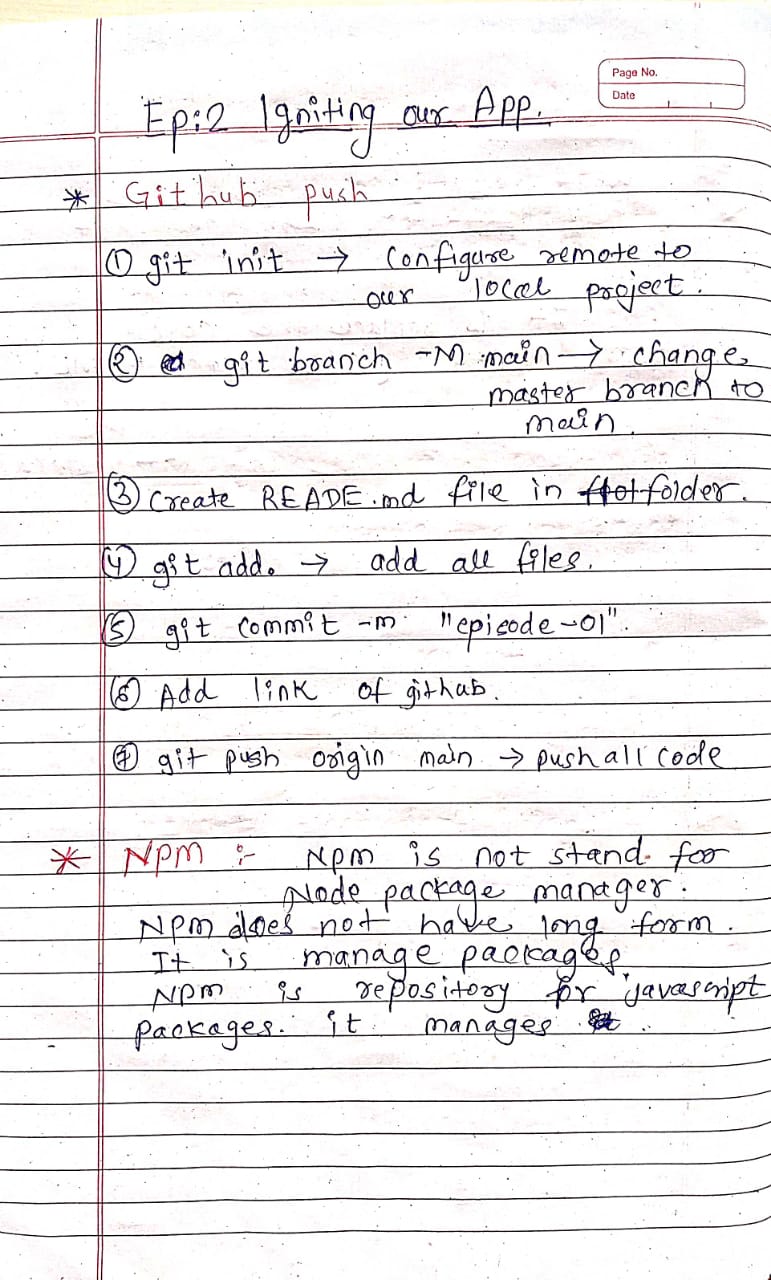 Page No.
Date
Ep:2 Igniting our App.
* Github push
① git init → Configure remote to
our local project.
② git branch -M main → change
master branch to
main.
③ Create READE.md file in folder.
④ git add. → add all files.
⑤ git commit -m "episode-01".
⑥ Add link of github.
⑦ git push origin main → push all code
* NPM :- NPM is not stand for
Node package manager.
NPM does not have long form.
It is manage packages
NPM is repository for javascript
packages. it manages .